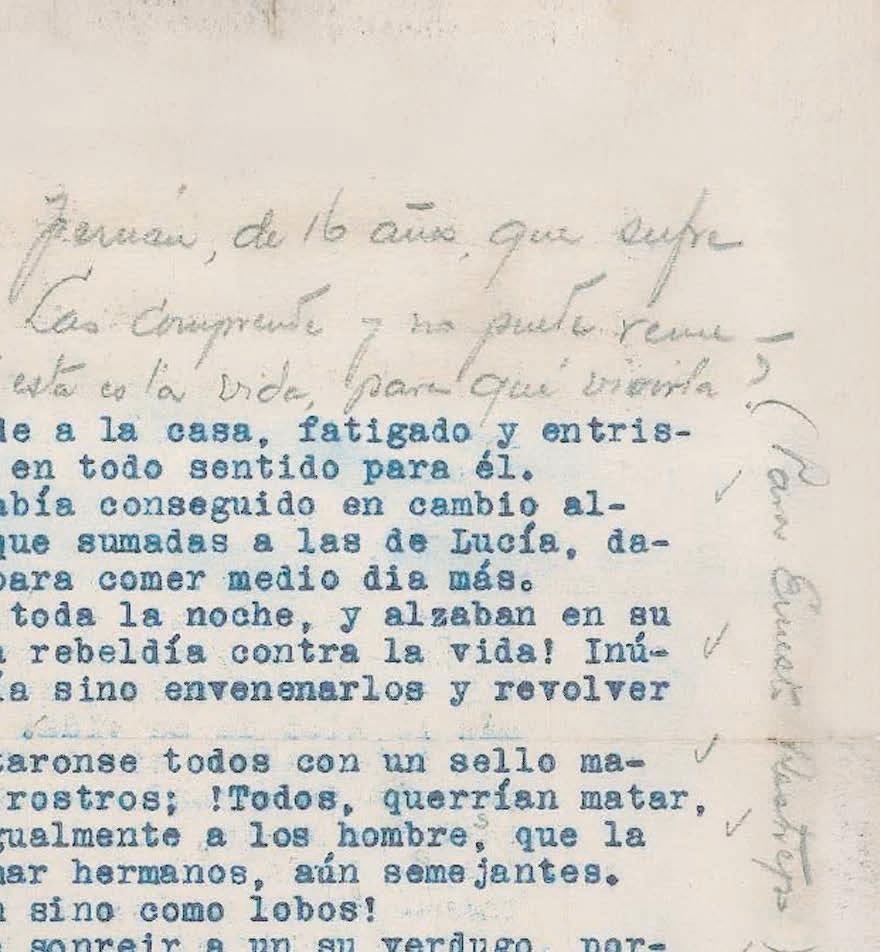 Germán, de 16 años, que sufre
Las comprende y no puede reme-
esta es la vida, para qué vivirla?
(Para Ernesto
de a la casa, fatigado y entris-
en todo sentido para él.
abía conseguido en cambio al-
que sumadas a las de Lucía, da-
para comer medio dia más.
toda la noche, y alzaban en su
a rebeldía contra la vida! Inú-
ía sino envenenarlos y revolver
taronse todos con un sello ma-
rostros; !Todos, querrían matar,
gualmente a los hombres, que la
mar hermanos, aún semejantes.
n sino como lobos!
sonreir a un su verdugo, por-